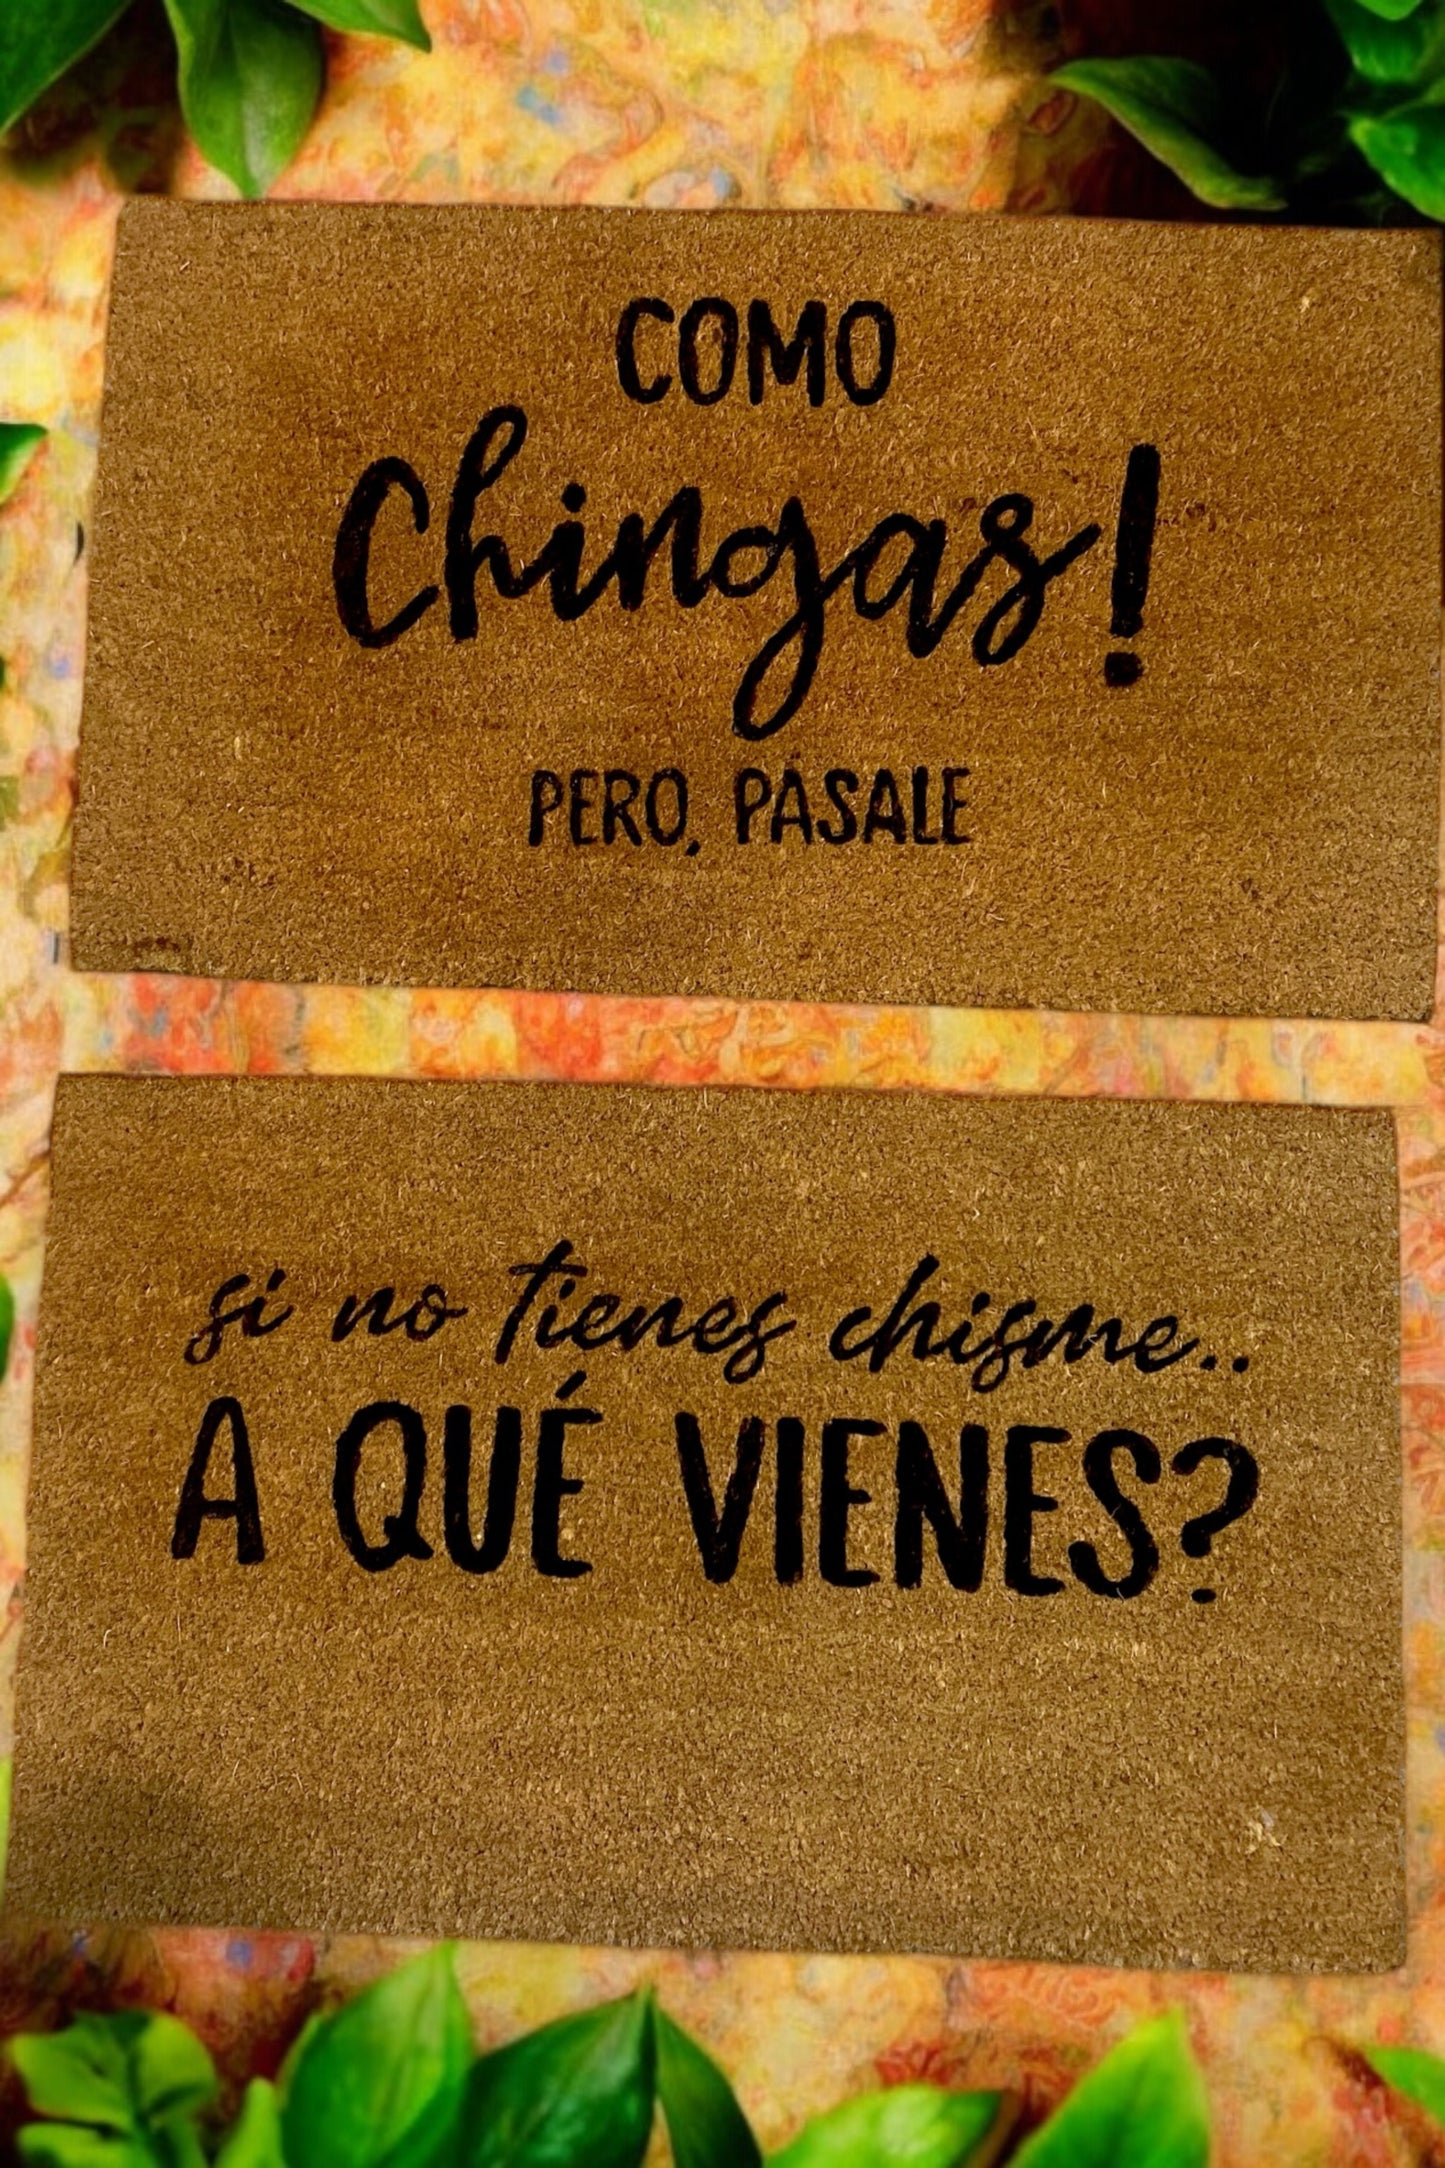 COMO
Chingas!
PERO, PÁSALE
si no tienes chisme..
A QUÉ VIENES?